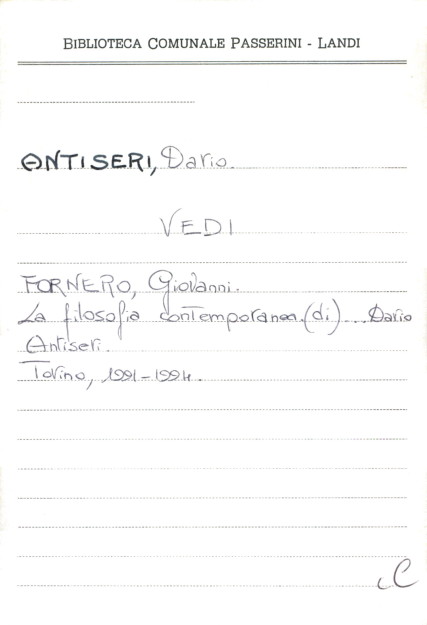 BIBLIOTECA COMUNALE PASSERINI - LANDI
ANTISERI, Dario.
VEDI
FORNERO, Giovanni.
La filosofia contemporanea. (di) ... Dario
Antiseri.
Torino, 1991-1994.
iC